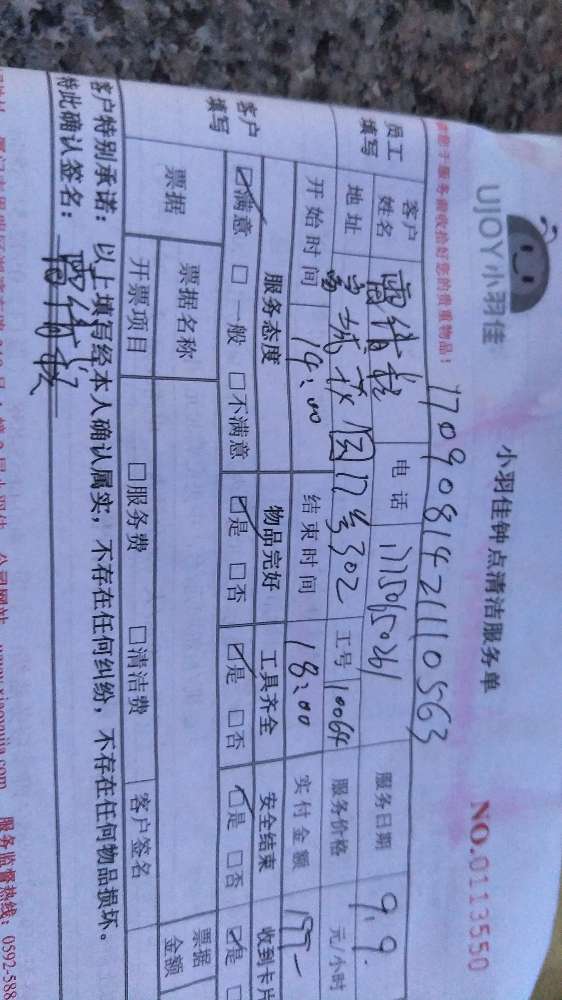 UJOY小羽佳
小羽佳钟点清洁服务单
NO.0113550
17090814211110563
服务前收拾好您的贵重物品!
员工填写
客户姓名
电话
服务日期 9.9.
地址
302
工号 10064
服务价格
元/小时
开始时间 14:00
结束时间 18:00
实付金额
客户填写
服务态度 物品完好 工具齐全 安全结束 收到卡片
☑满意 □一般 □不满意 ☑是 □否 ☑是 □否 ☑是 □否 ☑是
票据
票据名称
票据金额
开票项目 □服务费 □清洁费 客户签名
客户特别承诺:以上填写经本人确认属实,不存在任何纠纷,不存在任何物品损坏。
特此确认签名:
公司网站 www.xiaoyujia.com 服务监督热线:0592-588